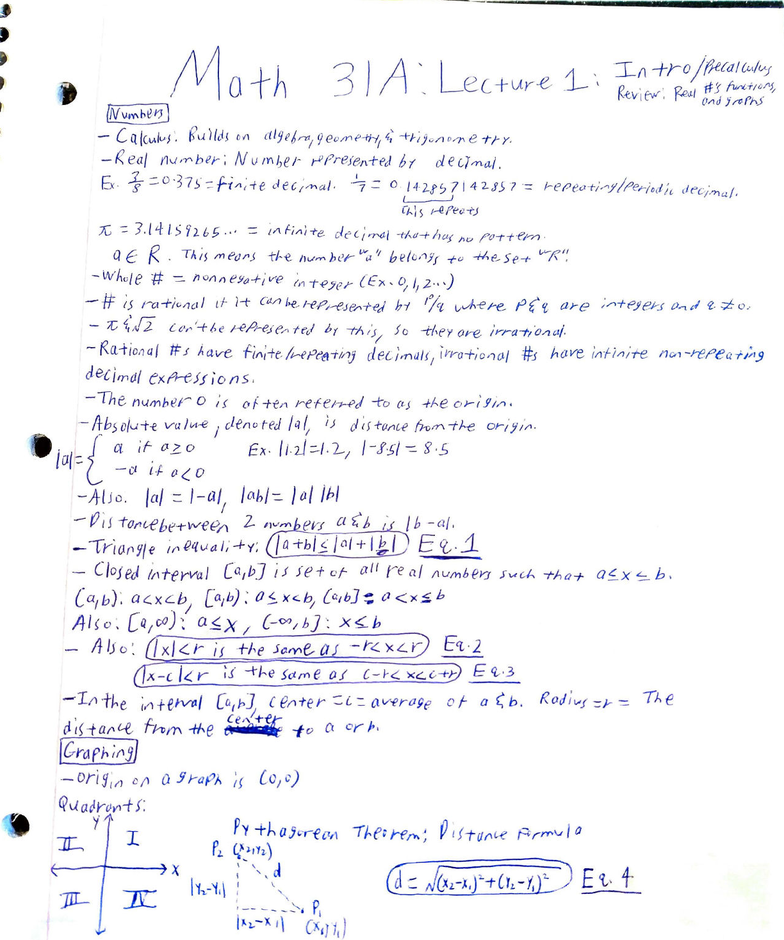 Math 31A: Lecture 1: Intro/Precalculus
Review: Real #'s, functions, and graphs
Numbers
- Calculus: Builds on algebra, geometry, & trigonometry.
- Real number: Number represented by decimal.
Ex. 3/8 = 0.375 = finite decimal. 1/7 = 0.142857142857 = repeating/periodic decimal.
this repeats
π = 3.14159265... = infinite decimal that has no pattern.
a ∈ R. This means the number "a" belongs to the set "R".
- Whole # = nonnegative integer (Ex. 0,1,2...)
- # is rational if it can be represented by P/q where P & q are integers and q ≠ 0.
- π & √2 can't be represented by this, so they are irrational.
- Rational #s have finite/repeating decimals, irrational #s have infinite non-repeating
decimal expressions.
- The number 0 is often referred to as the origin.
- Absolute value, denoted |a|, is distance from the origin.
|a| = { a if a ≥ 0 Ex. |1.2| = 1.2, |-8.5| = 8.5
-a if a < 0
- Also. |a| = |-a|, |ab| = |a| |b|
- Distance between 2 numbers a & b is |b-a|.
- Triangle inequality: |a+b| ≤ |a| + |b| Eq. 1
- Closed interval [a,b] is set of all real numbers such that a ≤ x ≤ b.
(a,b): a<x<b, [a,b): a≤x<b, (a,b] = a<x≤b
Also: [a,∞): a≤x, (-∞,b]: x≤b
- Also: |x|<r is the same as -r<x<r Eq. 2
|x-c|<r is the same as c-r<x<c+r Eq. 3
- In the interval [a,b], center = c = average of a & b. Radius = r = The
distance from the center to a or b.
Graphing
- origin on a graph is (0,0)
Quadrants:
Y
II I
X
III IV
Pythagorean Theorem; Distance Formula
P₂ (x₂,y₂)
d
|y₂-y₁|
P₁
|x₂-x₁| (x₁,y₁)
d = √(x₂-x₁)² + (y₂-y₁)² Eq. 4